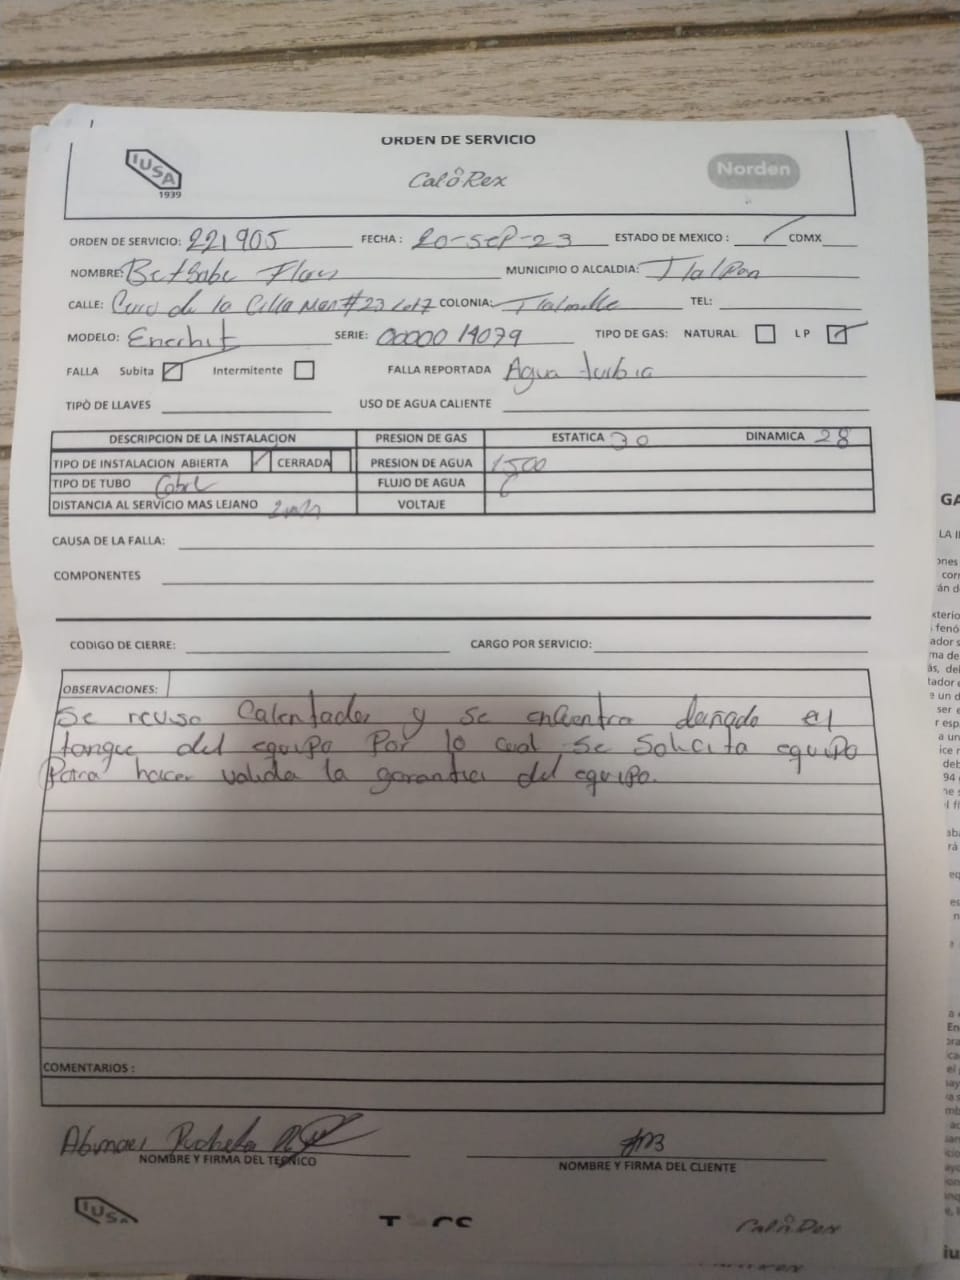 ORDEN DE SERVICIO
IUSA
1939
CalôRex
Norden
ORDEN DE SERVICIO: 221905 FECHA : 20-SEP-23 ESTADO DE MEXICO : CDMX
NOMBRE: Betsabe Flores MUNICIPIO O ALCALDIA: Tlalpan
CALLE: de la #23 COLONIA: TEL:
MODELO: Enerhit SERIE: 00000 14079 TIPO DE GAS: NATURAL LP
FALLA Subita Intermitente FALLA REPORTADA Agua turbia
TIPÒ DE LLAVES USO DE AGUA CALIENTE
DESCRIPCION DE LA INSTALACION PRESION DE GAS ESTATICA 30 DINAMICA 28
TIPO DE INSTALACION ABIERTA CERRADA PRESION DE AGUA 1500
TIPO DE TUBO FLUJO DE AGUA
DISTANCIA AL SERVICIO MAS LEJANO VOLTAJE
CAUSA DE LA FALLA:
COMPONENTES
CODIGO DE CIERRE: CARGO POR SERVICIO:
OBSERVACIONES:
Se reviso Calentador y se encuentra dañado el
tanque del equipo Por lo cual Se Solicita equipo
Para hacer valida la garantia del equipo.
COMENTARIOS :
NOMBRE Y FIRMA DEL TECNICO
NOMBRE Y FIRMA DEL CLIENTE
IUSA
CalôRex